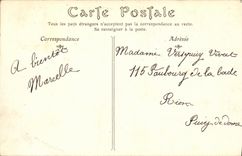 Carte Postale
Tous les pays étrangers n'acceptent pas la correspondance au recto.
Se renseigner à la poste.
Correspondance
Adresse
A bientôt
Marcelle
Madame
115 Faubourg de la bade
Riom
Puy de dome